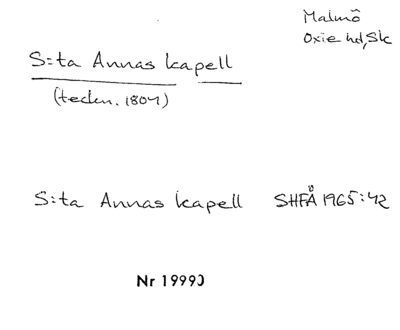 Malmö
Oxie hd, Sk
S:ta Annas kapell
(teckn. 1804)
S:ta Annas kapell SHFÅ 1965:42
Nr 19990